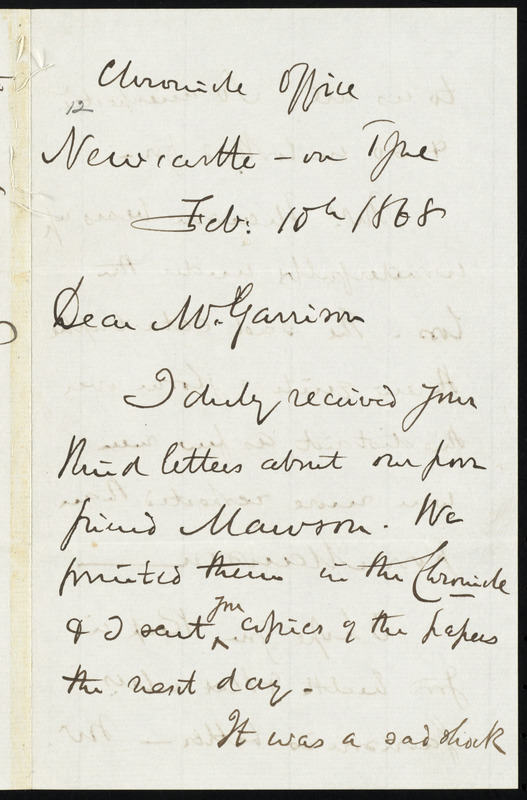 Chronicle Office
12
Newcastle-on Tyne
Feb: 10th 1868
Dear Mr. Garrison
I duly received your
kind letters about our poor
friend Mawson. We
printed them in the Chronicle
& I sent ^you copies of the papers
the next day.
It was a sad shock